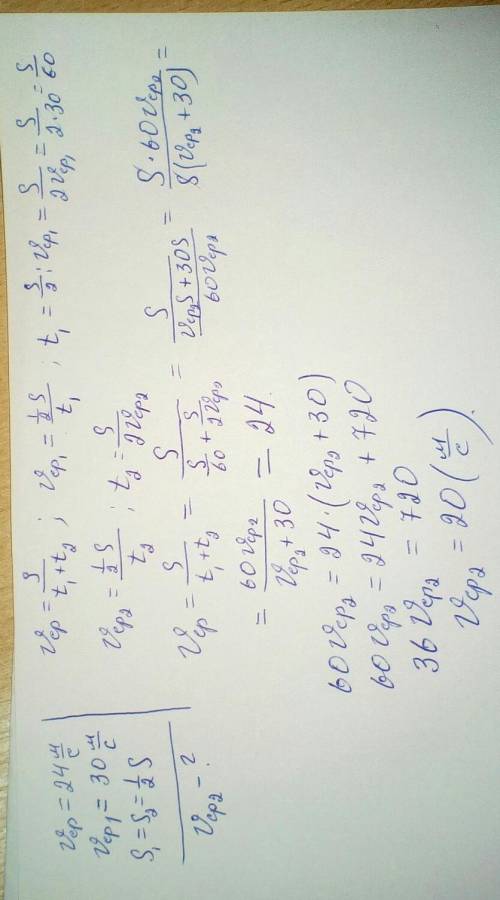 υср = 24 м/с
υср1 = 30 м/с
S₁ = S₂ = ½ S
υср2 - ?
υср = S/(t₁ + t₂) ; υср1 = ½S/t₁ ; t₁ = S/2 : υср1 = S/(2υср1) = S/(2·30) = S/60
υср2 = ½S/t₂ ; t₂ = S/(2υср2)
υср = S/(t₁ + t₂) = S/(S/60 + S/(2υср2)) = S/((υср2S + 30S)/(60υср2)) = S·60υср2/(S(υср2 + 30)) =
= 60υср2/(υср2 + 30) = 24.
60υср2 = 24·(υср2 + 30)
60υср2 = 24υср2 + 720
36υср2 = 720
υср2 = 20 (м/с).